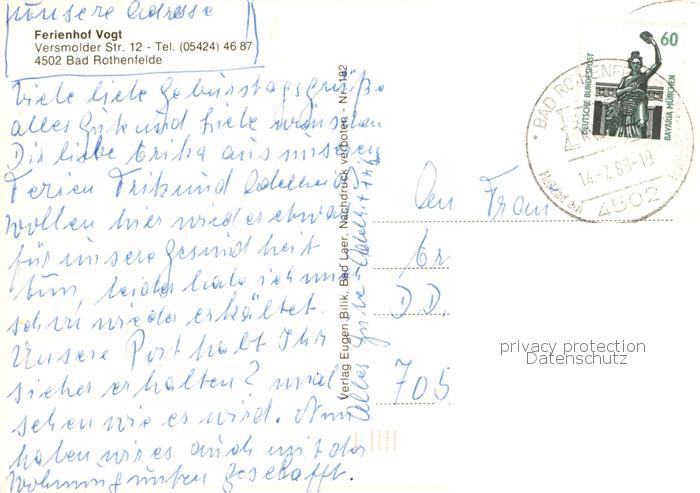 Unsere Adresse
Ferienhof Vogt
Versmolder Str. 12 - Tel. (05424) 46 87
4502 Bad Rothenfelde
Viele liebe Geburtstagsgrüße
alles Gute und Liebe wünschen
Dir liebe Erika aus unseren
Ferien Fritz und Adelheid
wollen hier wieder etwas
für unsere Gesundheit
tun, leider habe ich mich
schon wieder erkältet.
Unsere Post habt Ihr
sicher erhalten? mal
sehen wie es wird. Nun
haben wir es auch mit der
Wohnung unten geschafft.
Alles Gute Adelheid + Fritz
Verlag Eugen Bilik, Bad Laer, Nachdruck verboten · Nr. 182
60
DEUTSCHE BUNDESPOST
BAVARIA MÜNCHEN
BAD ROTHENFELDE
14.-7.89-19
4502
An Frau
Er
D.D.
705
privacy protection
Datenschutz